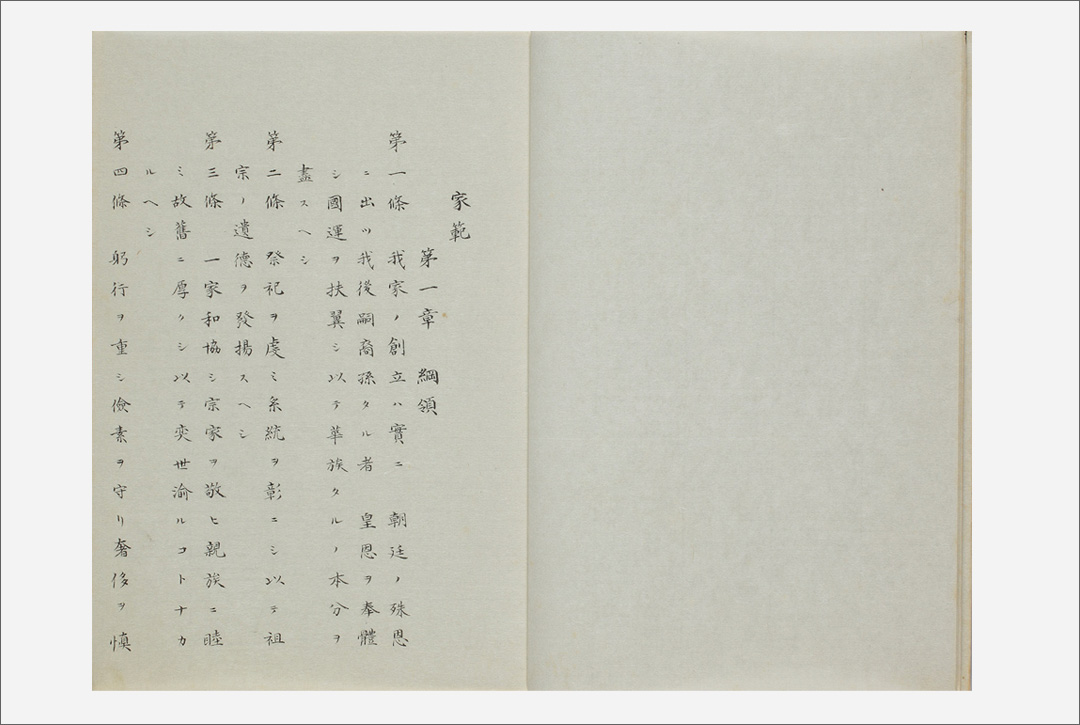 家範
第一章 綱領
第一條 我家ノ創立ハ實ニ 朝廷ノ殊恩
ニ出ツ我後嗣裔孫タル者 皇恩ヲ奉體
シ國運ヲ扶翼シ以テ華族タルノ本分ヲ
盡スヘシ
第二條 祭祀ヲ虔ミ系統ヲ彰ニシ以テ祖
宗ノ遺德ヲ發揚スヘシ
第三條 一家和協シ宗家ヲ敬ヒ親族ニ睦
ミ故舊ニ厚クシ以テ奕世渝ルコトナカ
ルヘシ
第四條 躬行ヲ重シ儉素ヲ守リ奢侈ヲ愼